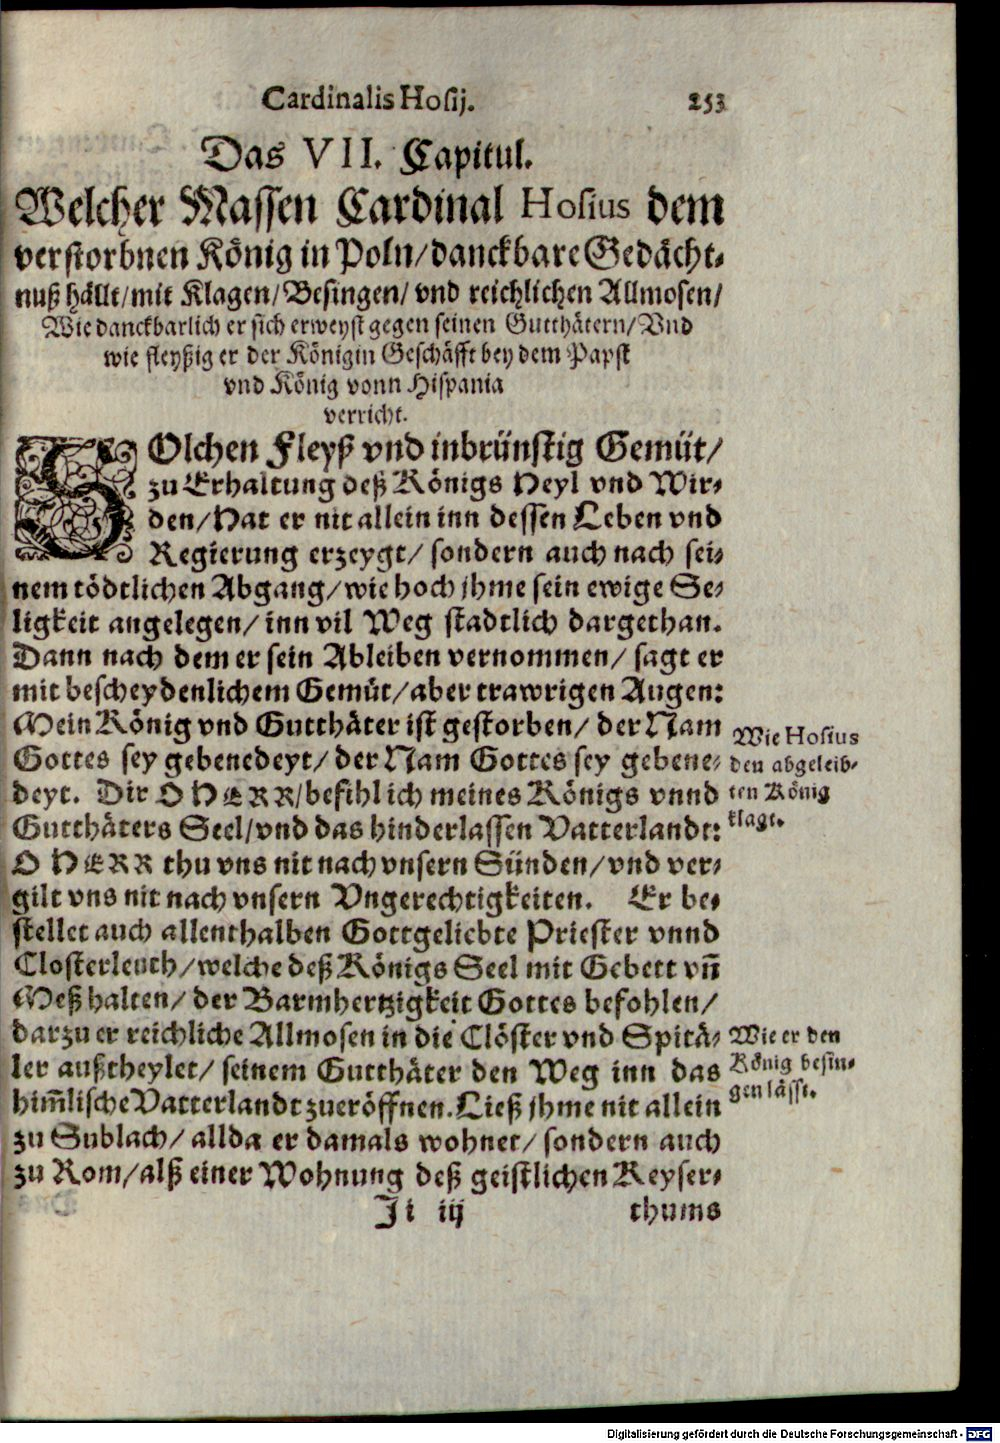 Cardinalis Hosij. 253
Das VII. Capitul.
Welcher Massen Cardinal Hosius dem
verstorbnen König in Poln/danckbare Gedächt-
nuß hällt/mit Klagen/Besingen/vnd reichlichen Allmosen/
Wie danckbarlich er sich erweyst gegen seinen Gutthätern/Vnd
wie fleyßig er der Königin Geschäfft bey dem Papst
vnd König vonn Hispania
verricht.
SOlchen Fleyß vnd inbrünstig Gemüt/
zu Erhaltung deß Königs Heyl vnd Wir-
den/Hat er nit allein inn dessen Leben vnd
Regierung erzeygt/ sondern auch nach sei-
nem tödtlichen Abgang/wie hoch jhme sein ewige Se-
ligkeit angelegen/inn vil Weg stadtlich dargethan.
Dann nach dem er sein Ableiben vernommen/ sagt er
mit bescheydenlichem Gemüt/aber trawrigen Augen:
Mein König vnd Gutthäter ist gestorben/ der Nam
Gottes sey gebenedeyt/ der Nam Gottes sey gebene-
deyt. Dir O HERR/befihl ich meines Königs vnnd
Gutthäters Seel/vnd das hinderlassen Vatterlandt:
O HERR thu vns nit nach vnsern Sünden/vnd ver-
gilt vns nit nach vnsern Vngerechtigkeiten. Er be-
stellet auch allenthalben Gottgeliebte Priester vnnd
Closterleuth/welche deß Königs Seel mit Gebett vn̄
Meß halten/ der Barmhertzigkeit Gottes befohlen/
darzu er reichliche Allmosen in die Clöster vnd Spitä-
ler außtheylet/ seinem Gutthäter den Weg inn das
him̄lische Vatterlandt zueröffnen. Ließ jhme nit allein
zu Sublach/ allda er damals wohnet/ sondern auch
zu Rom/alß einer Wohnung deß geistlichen Keyser-
Ji iij thums
Wie Hosius
den abgeleib-
ten König
klagt.
Wie er den
König besin-
gen lässt.
Digitalisierung gefördert durch die Deutsche Forschungsgemeinschaft - DFG